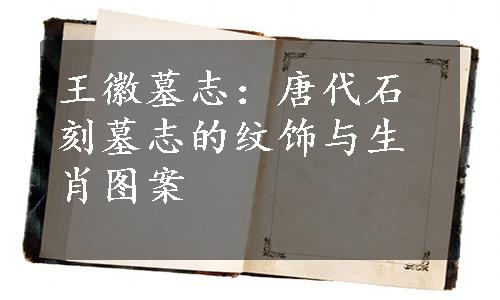 王徽墓志：唐代石
刻墓志的纹饰与生
肖图案